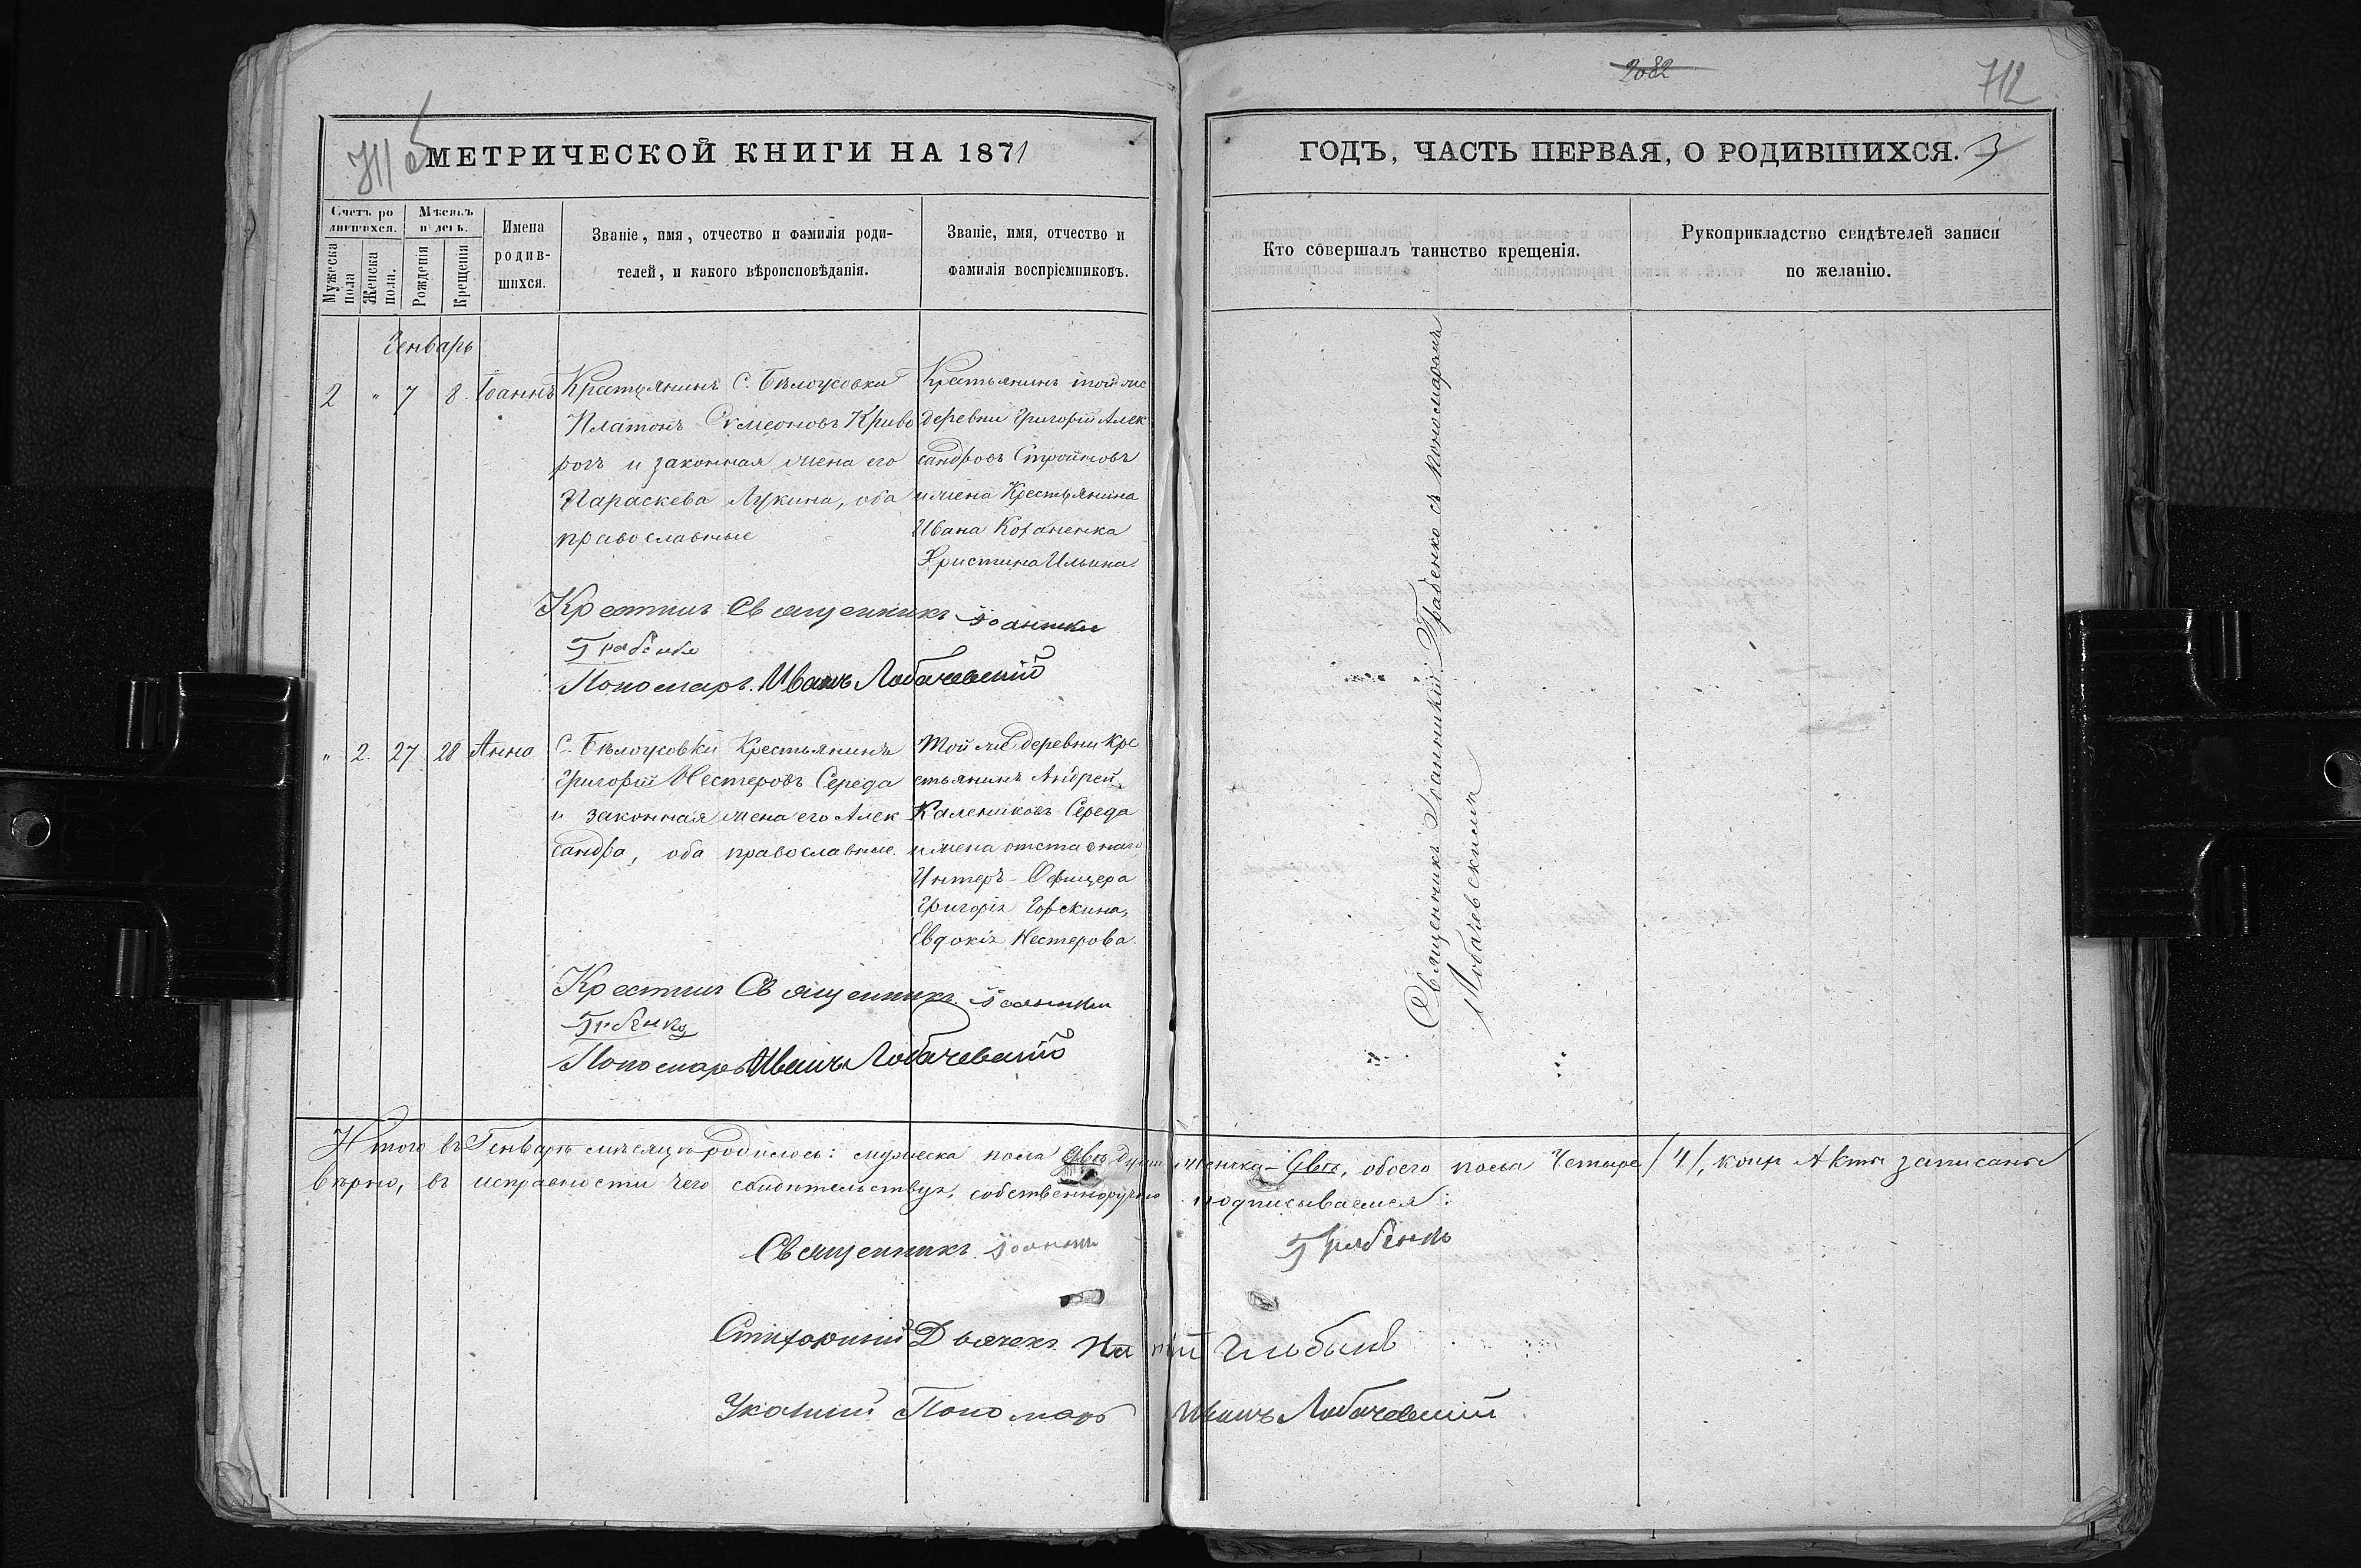 711
5
МЕТРИЧЕСКОЙ КНИГИ НА 1871
Счетъ родившихся.
Мѣсяцъ и день.
Мужеска пола
Женска пола.
Рожденія
Крещенія
Имена
родив-
шихся.
Званіе, имя, отчество и фамилія роди-
телей, и какого вѣроисповѣданія.
Званіе, имя, отчество и
фамилія воспріемниковъ.
Генварь
2 " 7 8. Іоаннъ
Крестьянинъ С. Бѣлоусовки
Платонъ Симеоновъ Криво
рогъ и законная жена его
Параскева Лукина, оба
православные
Крестьянинъ той же
деревни Григорій Алек
сандровъ Стройновъ
и жена Крестьянина
Ивана Коханенка
Христина Ильина.
Крестилъ Священникъ Іоанникій
Грабенко
Пономарь Иванъ Лобачевскій
" 2. 27 28 Анна
С. Бѣлоусовки Крестьянинъ
Григорій Нестеровъ Середа
и законная жена его Алек
сандра, оба православные.
Той же деревни Кре
стьянинъ Андрей
Калениковъ Середа
и жена отставнаго
Унтеръ-Офицера
Григорія Горскина,
Евдокія Нестерова.
Крестилъ Священникъ Іоанникій
Грабенко
Пономарь Иванъ Лобачевскій
2082
712
ГОДЪ, ЧАСТЬ ПЕРВАЯ, О РОДИВШИХСЯ. 3
Кто совершалъ таинство крещенія.
Рукоприкладство свидѣтелей записи
по желанію.
Священникъ Іоанникій Грабенко съ пономаремъ
Лобачевскимъ
Итого въ Генварѣ мѣсяцѣ родилось: мужеска пола двѣ души женска – двѣ, обоего пола четыре /4/, коихъ Акты записаны
вѣрно, въ исправности чего свидѣтельствуя, собственноручно подписываемся:
Священникъ Іоанникій Грабенко
Стихарный Дьячекъ
Указный Пономарь Иванъ Лобачевскій